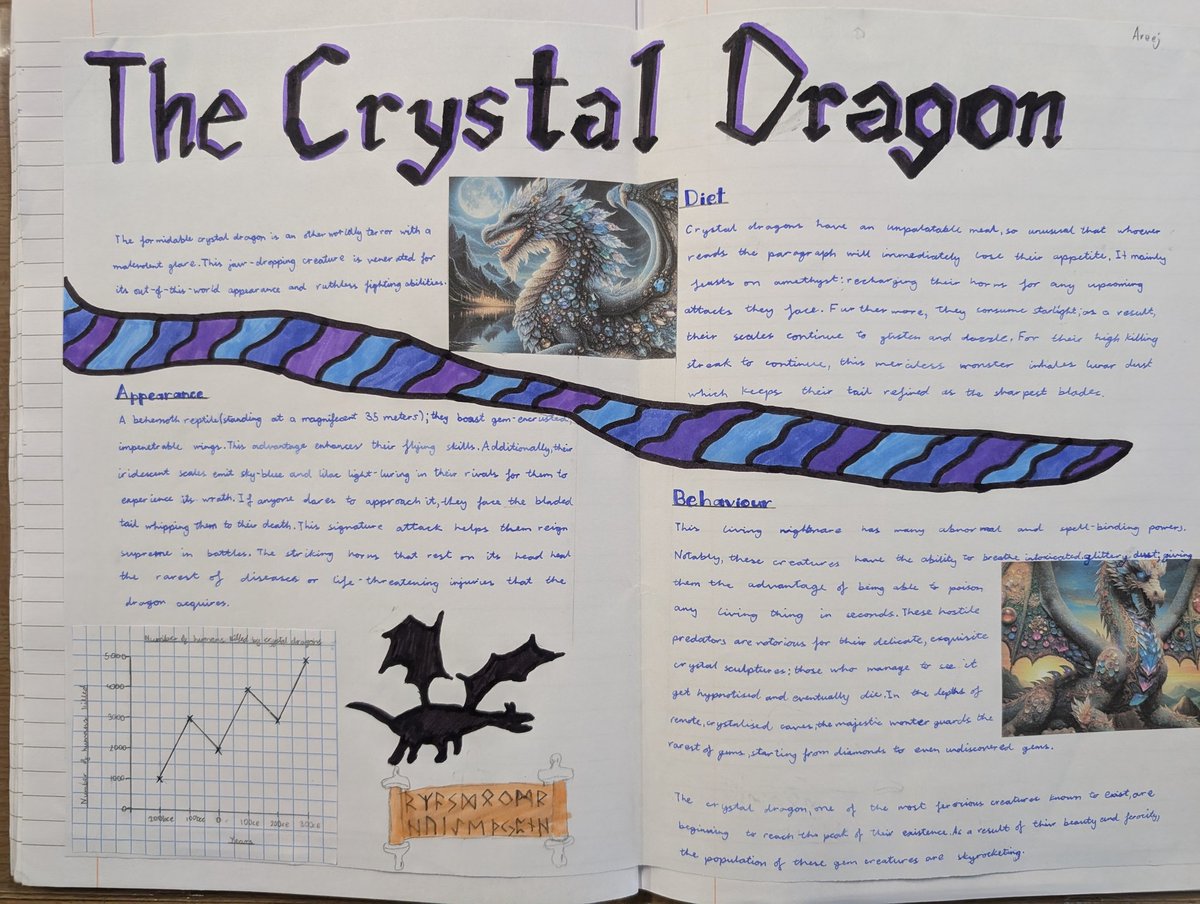 Areej
The Crystal Dragon
The formidable crystal dragon is an other worldly terror with a
malevolent glare. This jaw-dropping creature is venerated for
its out-of-this-world appearance and ruthless fighting abilities.
Appearance
A behemoth reptile(standing at a magnificent 35 meters); they boast gem-encrusted,
impenetrable wings. This advantage enhances their flying skills. Additionally, their
iridescent scales emit sky-blue and lilac light-luring in their rivals for them to
experience its wrath. If anyone dares to approach it, they face the bladed
tail whipping them to their death. This signature attack helps them reign
supreme in battles. The striking horns that rest on its head heal
the rarest of diseases or life-threatening injuries that the
dragon acquires.
Number of humans killed by crystal dragons
Number of humans killed
5000
4000
3000
2000
1000
0
200bce 100ce 0 100ce 200ce 300ce
Years
Diet
Crystal dragons have an unpalatable meal, so unusual that whoever
reads the paragraph will immediately lose their appetite. It mainly
feasts on amethyst: recharging their horns for any upcoming
attacks they face. Furthermore, They consume starlight; as a result,
their scales continue to glisten and dazzle. For their high killing
streak to continue, this merciless monster inhales lunar dust
which keeps their tail refined as the sharpest blades.
Behaviour
This living nightmare has many abnormal and spell-binding powers.
Notably, these creatures have the ability to breathe intoxicated, glittery dust, giving
them the advantage of being able to poison
any living thing in seconds. These hostile
predators are notorious for their delicate, exquisite
crystal sculptures; those who manage to see it
get hypnotised and eventually die. In the depths of
remote, crystalised caves, the majestic monter guards the
rarest of gems, starting from diamonds to even undiscovered gems.
The crystal dragon, one of the most ferocious creatures known to exist, are
beginning to reach the peak of their existence. As a result of their beauty and ferocity,
the population of these gem creatures are skyrocketing.